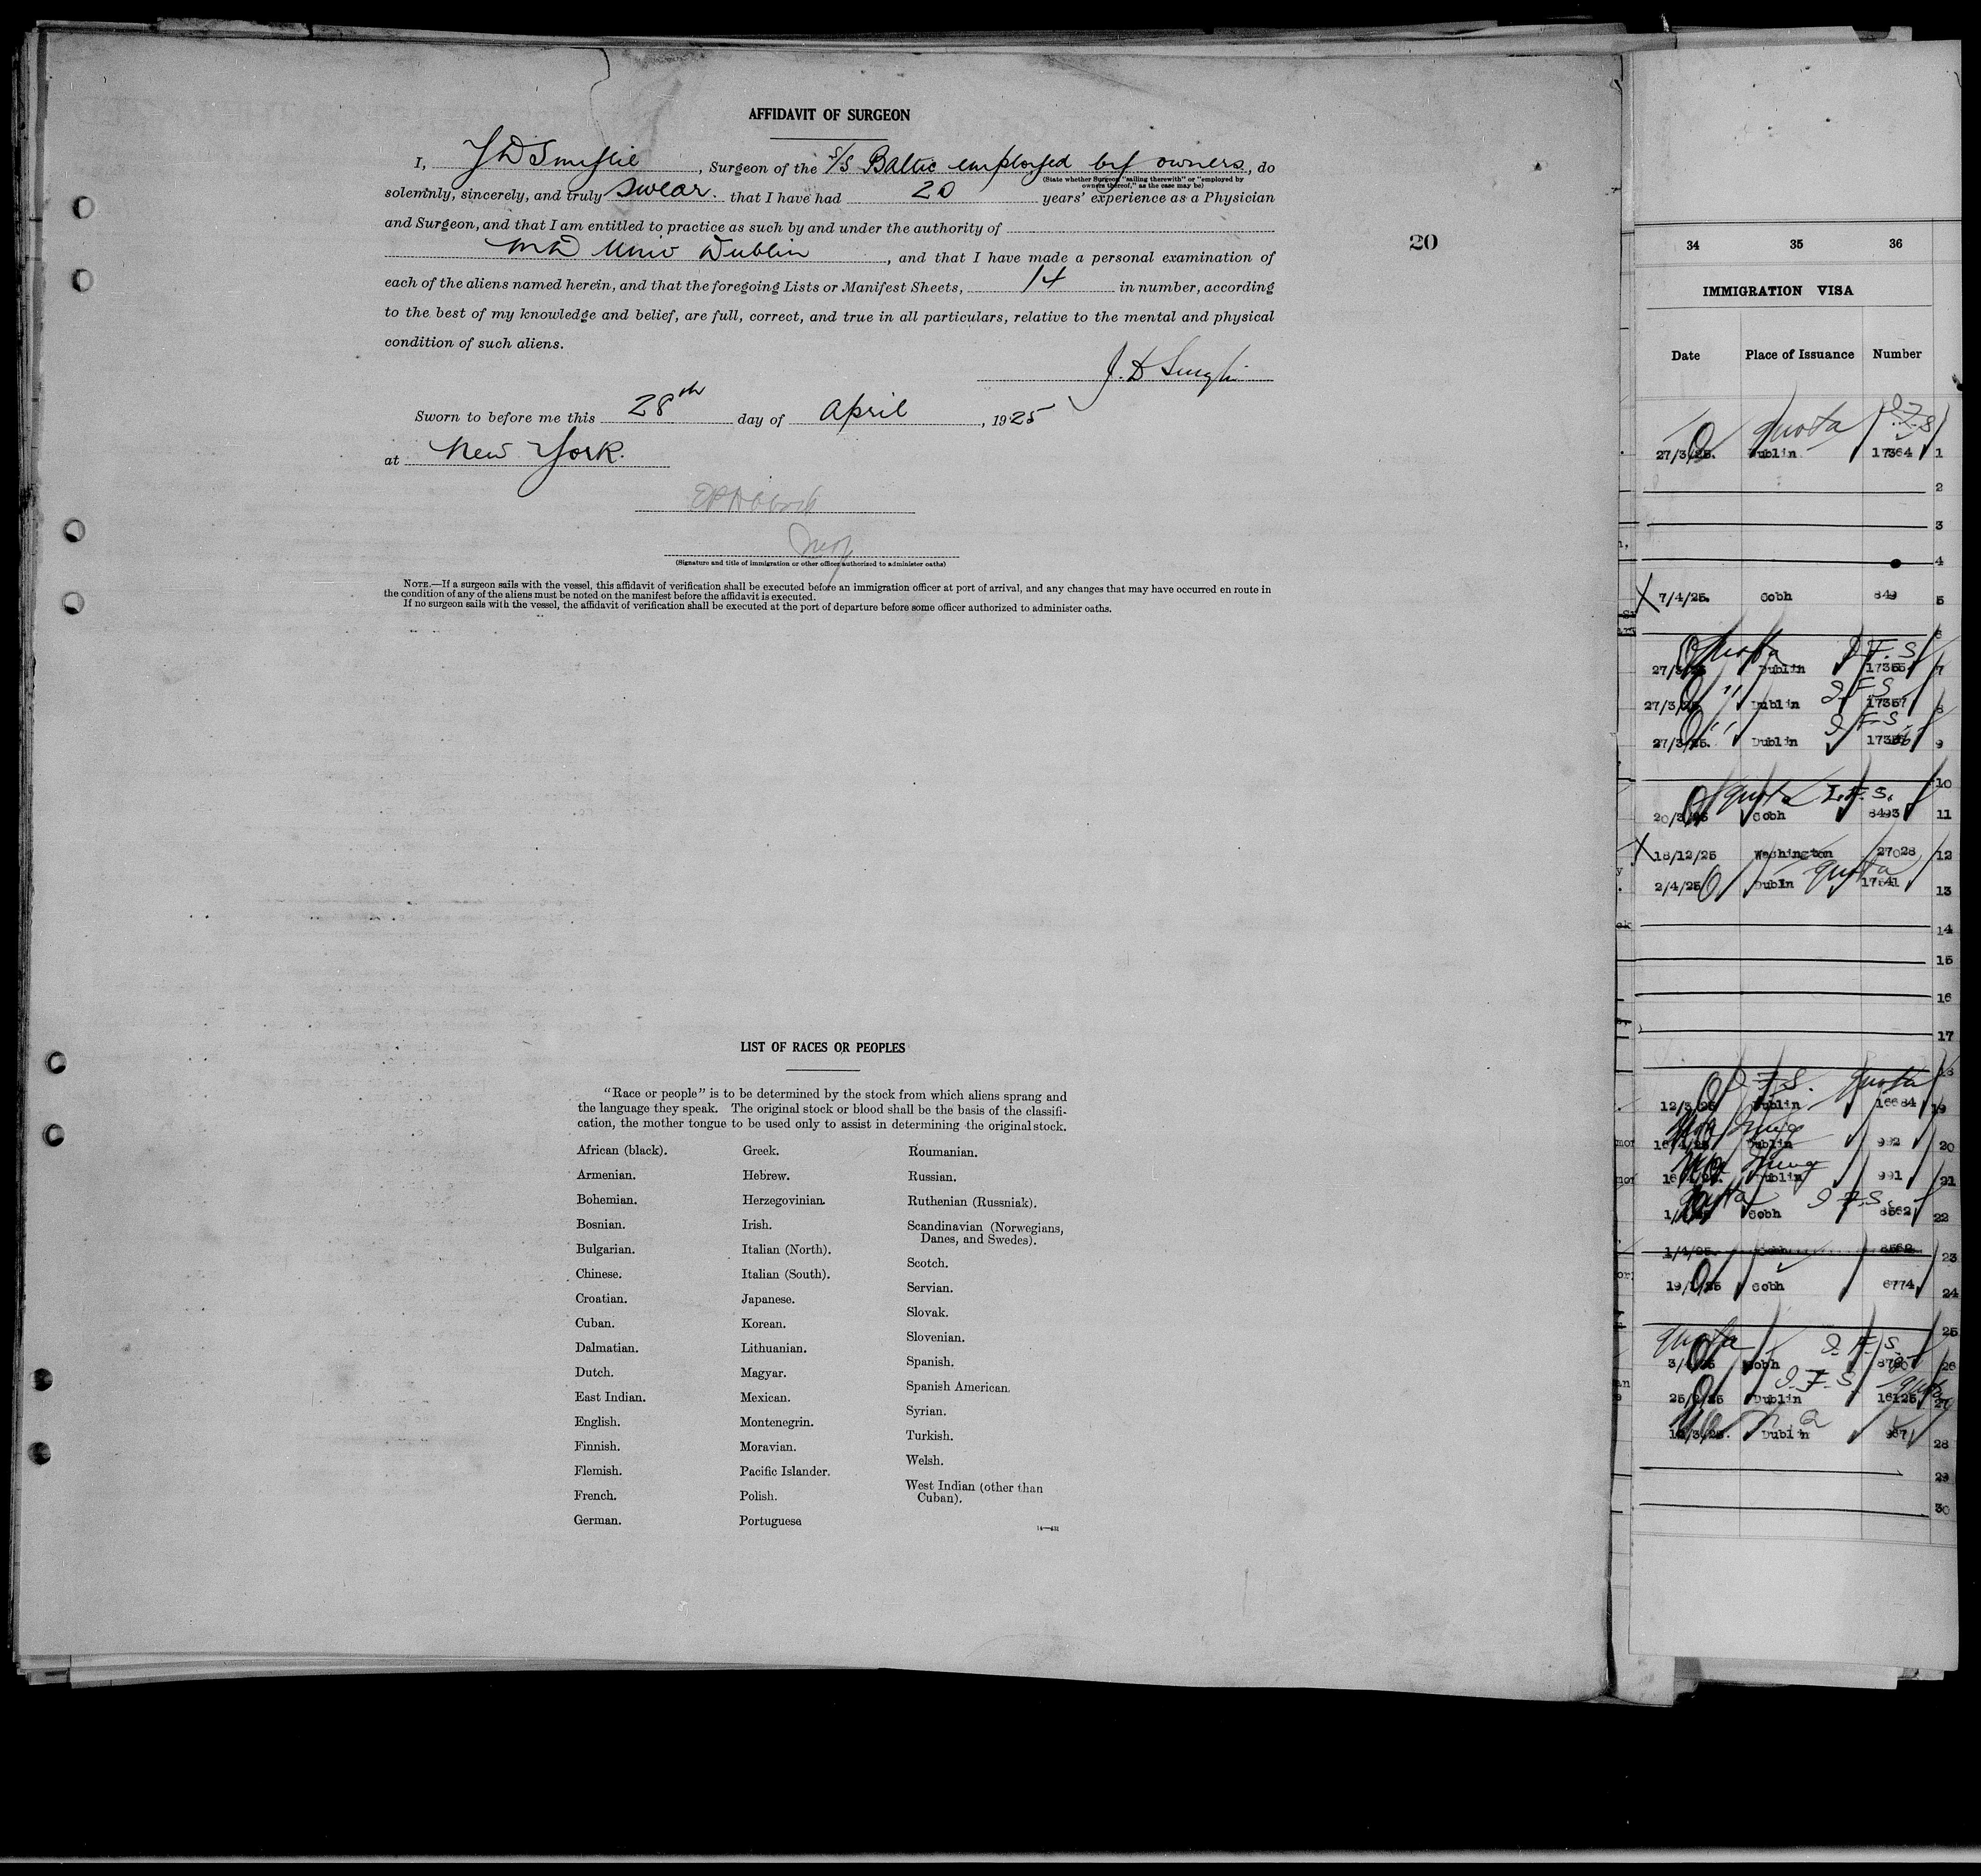 AFFIDAVIT OF SURGEON
I, J D Smylie, Surgeon of the S/S Baltic employed by owners, do
(State whether Surgeon "sailing therewith" or "employed by
owners thereof," as the case may be)
solemnly, sincerely, and truly swear. that I have had 20 years' experience as a Physician
and Surgeon, and that I am entitled to practice as such by and under the authority of
MD Univ Dublin, and that I have made a personal examination of
each of the aliens named herein, and that the foregoing Lists or Manifest Sheets, 14 in number, according
to the best of my knowledge and belief, are full, correct, and true in all particulars, relative to the mental and physical
condition of such aliens.
Sworn to before me this 28th day of April, 1925
at New York.
(Signature and title of immigration or other officer authorized to administer oaths)
NOTE.—If a surgeon sails with the vessel, this affidavit of verification shall be executed before an immigration officer at port of arrival, and any changes that may have occurred en route in
the condition of any of the aliens must be noted on the manifest before the affidavit is executed.
If no surgeon sails with the vessel, the affidavit of verification shall be executed at the port of departure before some officer authorized to administer oaths.
20
LIST OF RACES OR PEOPLES
"Race or people" is to be determined by the stock from which aliens sprang and
the language they speak. The original stock or blood shall be the basis of the classifi-
cation, the mother tongue to be used only to assist in determining the original stock.
African (black).
Armenian.
Bohemian.
Bosnian.
Bulgarian.
Chinese.
Croatian.
Cuban.
Dalmatian.
Dutch.
East Indian.
English.
Finnish.
Flemish.
French.
German.
Greek.
Hebrew.
Herzegovinian.
Irish.
Italian (North).
Italian (South).
Japanese.
Korean.
Lithuanian.
Magyar.
Mexican.
Montenegrin.
Moravian.
Pacific Islander.
Polish.
Portuguese
Roumanian.
Russian.
Ruthenian (Russniak).
Scandinavian (Norwegians,
Danes, and Swedes).
Scotch.
Servian.
Slovak.
Slovenian.
Spanish.
Spanish American.
Syrian.
Turkish.
Welsh.
West Indian (other than
Cuban).
34 35 36
IMMIGRATION VISA
Date Place of Issuance Number
quota I.F.S
27/3/25. Dublin 17364 1
2
3
4
X 7/4/25. Cobh 849 5
6
Quota I.F.S
27/3/25 Dublin 17355 7
" I.F.S
27/3/25 Dublin 17357 8
" I.F.S.
27/3/25. Dublin 9
10
quota I.F.S.
20/3/25 Cobh 8493 11
X 18/12/25 Washington 27028 12
quota
2/4/25 Dublin 13
14
15
16
17
18
I.F.S. quota
12/3/25 Dublin 16684 19
16/4/25 Dublin 992 20
Dublin 991 21
Quota I.F.S.
Cobh 8562 22
1/4/25. Cobh 8562 23
Cobh 6774 24
25
quota I.F.S.
Cobh 26
I.F.S. quota
Dublin 16125 27
Dublin 987 28
29
30